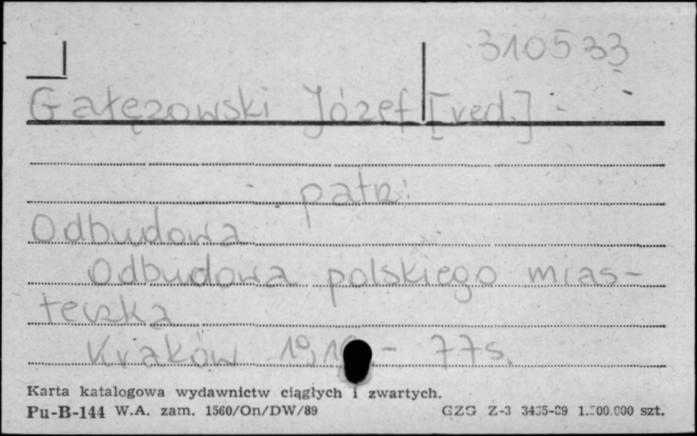 310533
Gałęzowski Józef [red.]
patrz:
Odbudowa
Odbudowa polskiego mias-
teczka
Kraków - 77 s.
Karta katalogowa wydawnictw ciągłych i zwartych.
Pu-B-144 W.A. zam. 1560/On/DW/89 GZG Z-3 szt.